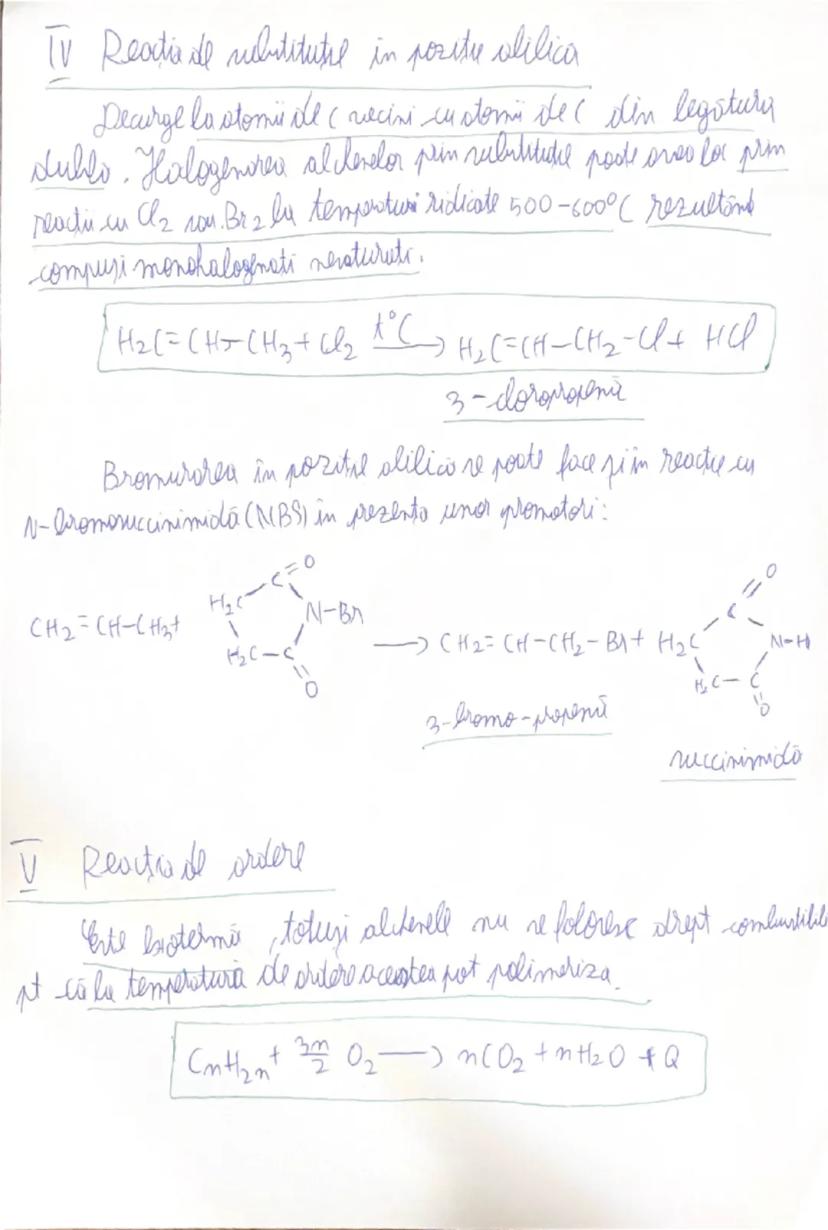 IV Reacția de substituție în poziție alilică
Decurge la atomii de C vecini cu atomii de C din legătura
dublă. Halogenarea alchenelor prin substituție poate avea loc prin
reacții cu Cl2 sau Br2 la temperaturi ridicate 500-600°C rezultând
compuși monohalogenați nesaturați.
H2C=CH-CH3 + Cl2 t°C → H2C=CH-CH2-Cl + HCl
3-cloropropenă
Bromurarea în poziție alilică se poate face și în reacție cu
N-bromosuccinimidă (NBS) în prezența unor promotori:
C=O C=O
H2C N-Br
CH2=CH-CH3+ → CH2=CH-CH2-Br + H2C N-H
H2C-C H2C-C
O O
3-bromo-propenă
succinimidă
V Reacția de ardere
Este exotermă, totuși alchenele nu se folosesc drept combustibili
pt că la temperatura de ardere acestea pot polimeriza.
CnH2n + 3n/2 O2 → nCO2 + nH2O + Q